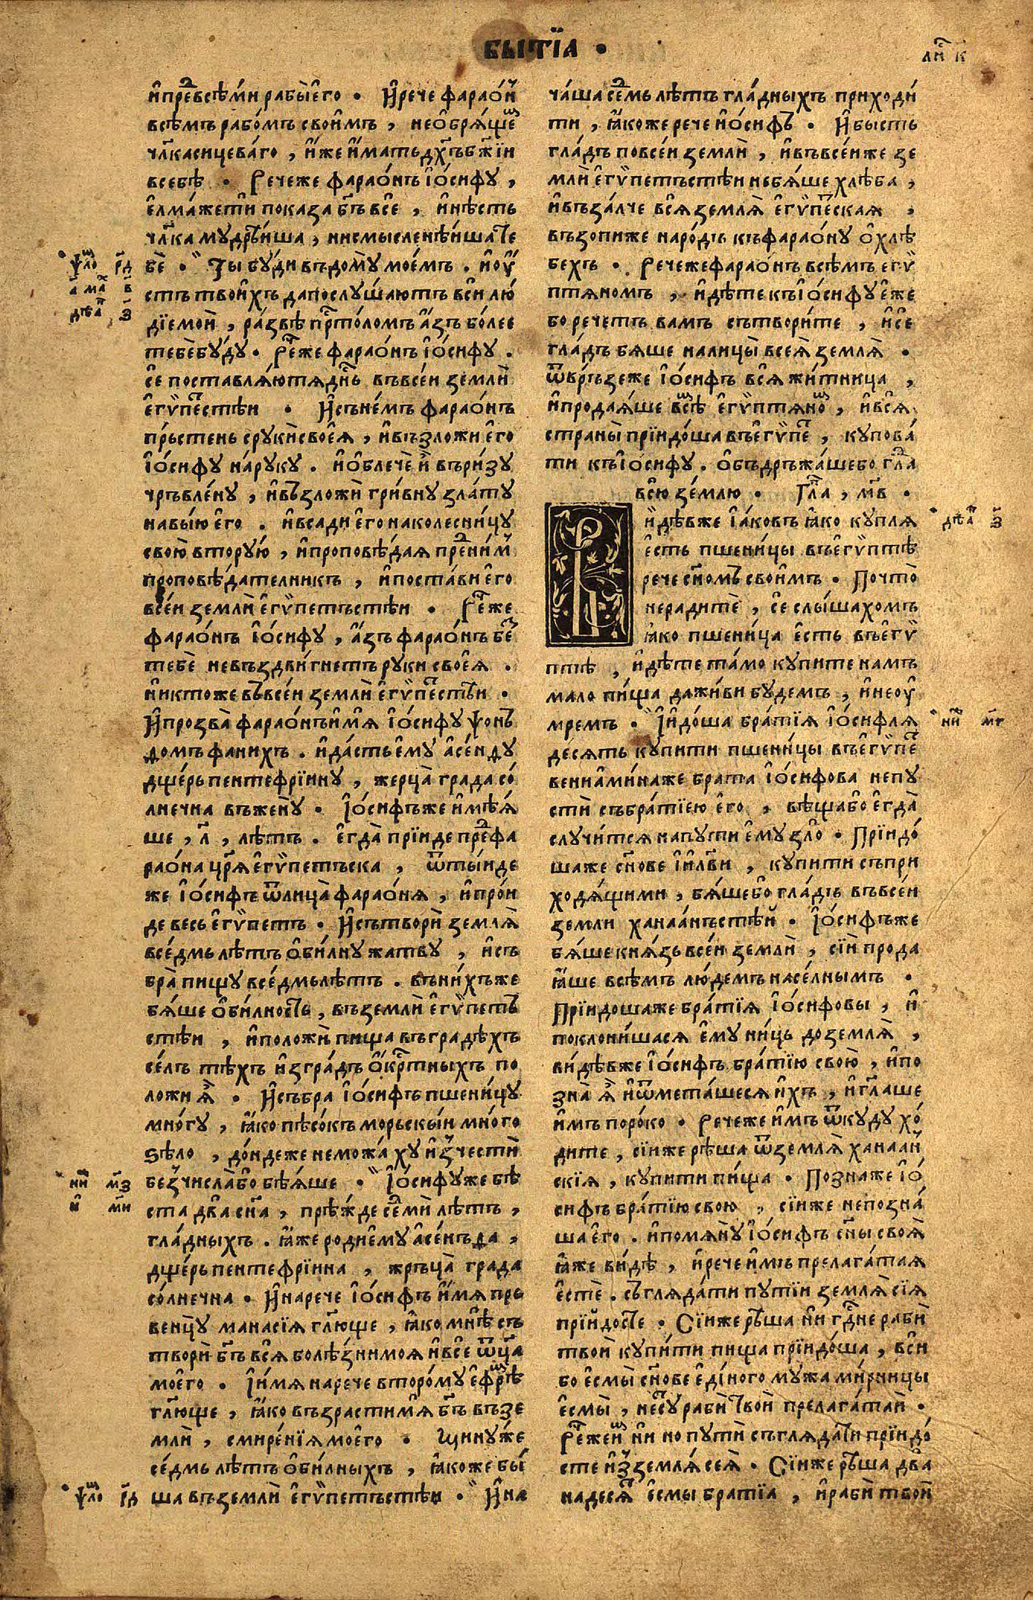 БЫТЇА ·
ли҃ к҃
ꙇ҆прⷣевсѣ́мꙇ рабы̀е҆го · И҆рече фарао́нъ
всѣ́мъ рабо́мъ свои҆мъ , не ѡ҆брѧ́ще
чл҃ка сицева́го , и҆́же и҆́мать дх҃ъ бж҃їи
в себѣ̀ · Рече же фарао́нъ і҆о́сифу ,
е҆лма́же ти показа̀ бг҃ъ всѐ , и҆ нѣ́сть
чл҃ка мудрѣ́иша , ни смысленѣ́иша те
бѐ · Ты̀ бу́ди в дому̀ мое́мъ . и҆ ѹ҆
стъ твои́хъ да послу́шаютъ всѝ лю́
дїе моѝ , ра́звѣ прⷭ҇толомъ а҆́зъ бо́лее
тебѐ бу́ду · Рече́ же фарао́нъ і҆о́сифу .
сѐ поставлѧ́ю тѧ̀ дн҃ь въ все́и землѝ
е҆гѵ́петстѣи · И҆ снѐмъ фарао́нъ
пръстень с рукѝ своеѧ̀ , и҆ възложѝ е҆го̀
і҆о́сифу на́ руку . и҆ ѡ҆блечѐ и҆̀ въ ри́зу
чръвле́ну , и҆ възложѝ гри́вну зла́ту
на вы́ю е҆го̀ . и҆ всадѝ е҆го̀ на колесни́цу
свою̀ вторую , и҆ проповѣ́даѧ пред ни́мъ
проповѣ́дателникъ , и҆ поста́ви е҆го̀
все́и землѝ е҆гѵ́петъстѣи · Рече́ же
фарао́нъ і҆о́сифу , а҆́зъ фарао́нъ без
тебѐ не въздви́гнетъ рукѝ своеѧ̀ .
никто́же въ все́и землѝ е҆гѵ́петстѣи ·
И҆ прозва̀ фарао́нъ и҆́мѧ і҆о́сифу ѱон
домъ фани́хъ . и҆ да́сть е҆му̀ а҆сене́ду
дще́рь пентефрі́ину , жерца̀ гра́да со́
лнечна въ жену̀ · І҆о́сифъ же и҆мѣ́ѧ
ше , л҃ , лѣ́тъ . е҆гда̀ прїи́де пред фа
рао́на цр҃ѧ̀ е҆гѵ́петъска , ѿты́иде
же і҆о́сифъ ѿ лица̀ фарао́нѧ , и҆ про́и
де весь е҆гѵ́петъ · И҆ сътворѝ землѧ̀
в се́дмь лѣ́тъ ѻ҆би́лну жа́тву , и҆ съ
бра̀ пи́щу в се́дмь лѣ́тъ . в ни́хъ же
бѧ́ше ѻ҆би́лность , въ землѝ е҆гѵ́петъ
стѣи , и҆ положѝ пи́ща въ градѣ́хъ
се́лъ тѣ́хъ и҆з гра́дъ ѻ҆кр҃тныхъ по
ложѝ ѧ҆̀ · И҆ събра̀ і҆о́сифъ пшени́цу
мно́гу , ꙗ҆́ко пѣсо́къ морьскы́и мно́го
ѕѣло̀ , до́ндеже немо́жаху и҆зчестѝ
без числа̀ бо бѣ́ѧше · І҆о́сифу же бѣ
ста два̀ сн҃а , прѣ́жде се́ми лѣ́тъ ,
гла́дныхъ . ꙗ҆́же родѝ е҆му̀ а҆сене́да ,
дще́рь пентефрі́ина , жръца̀ гра́да
со́лнечна · И҆ наречѐ і҆о́сифъ и҆́мѧ пръ
ве́нцу манасі́ѧ гл҃юще , ꙗ҆́ко мнѣ̀ съ
творѝ бг҃ъ всѧ̀ болѣ́зни моѧ̀ и҆ всѐ ѿц҃а
моего̀ . І҆́мѧ наречѐ второ́му е҆фре́мъ
гл҃юще , ꙗ҆́ко възрасти́ мѧ бг҃ъ въ зе
млѝ , смире́нїѧ моего̀ · Мину́ же
се́дмь лѣ́тъ ѻ҆би́лныхъ , ꙗ҆́коже бы́
ша въ землѝ е҆гѵ́петъстѣи · И҆ на
ча́ша се́дмь лѣ́тъ гла́дныхъ приходи́
ти , ꙗ҆́коже речѐ і҆о́сифъ · И҆ бысть
гла́дъ по все́и землѝ , и҆ въ все́и же зе
млѝ е҆гѵ́петъстѣи не бѧ́ше хлѣ́ба ,
и҆ въза́лче всѧ̀ землѧ̀ е҆гѵ́петскаѧ ,
възопи́ же наро́дъ къ фарао́ну ѻ҆ хлѣ́
бехъ · Рече́ же фарао́нъ всѣ́мъ е҆гѵ́
птѧномъ , и҆дѣ́те къ і҆о́сифу е҆́же
бо рече́тъ вамъ сътвори́те , и҆ сѐ
гла́дъ бѧ́ше на лицы̀ всеѧ̀ землѧ̀ ·
ѿвръ́зе же і҆о́сифъ всѧ̀ жи́тница ,
и҆ продаѧ́ше всѣ́мъ е҆гѵ́птѧномъ , и҆ всѧ̀
страны̀ прїидо́ша въ е҆гѵ́петъ , купова́
ти къ і҆о́сифу . ѻ҆бъдръжа́ше бо гла́дъ
всю̀ зе́млю · Гла , мв҃ ·
Ви́дѣв же і҆а́ковъ ꙗ҆́ко ку́плѧ
е҆́сть пшени́цы въ е҆гѵ́птѣ
речѐ сн҃омъ свои́мъ · Почто̀
нерадитѐ , сѐ слы́шахомъ
ꙗ҆́ко пшени́ца е҆́сть въ е҆гѵ́
птѣ , и҆дѣ́те та́мо купите на́мъ
мало пи́ща да жи́ви бу́демъ , и҆ не ѹ҆
мремъ · І҆идо́ша бра́тїѧ і҆о́сифлѧ
де́сѧть купи́ти пшени́цы въ е҆гѵ́петъ
венїами́на же бра́та і҆о́сифова не пу
стѝ съ бра́тїею е҆го̀ , вѣща́ бо е҆гда̀
случи́тсѧ на путѝ е҆му̀ зло̀ · Прїидо́
ша же сн҃ове і҆и҃лви , купи́ти съ при
ходѧ́щими , бѧ́ше бо гла́дъ въ все́и
землѝ ханаа́нъстѣи · І҆о́сифъ же
бѧ́ше кнѧ́зь все́и землѝ , сїѝ прода
ꙗ҆́ше всѣ́мъ лю́демъ насе́лнымъ ·
Прїидо́ша же бра́тїѧ і҆о́сифовы , и҆
поклони́шасѧ е҆му̀ ни́ць до землѧ̀ ,
ви́дѣв же і҆о́сифъ бра́тїю свою̀ , и҆ по
зна̀ ѧ҆̀ и҆ ѿмета́шесѧ и҆́хъ , и҆ гл҃аше
и҆́мъ поро́ко · Рече́ же и҆́мъ ѿкуду хо́
дите , сїи́ же рѣ́ша ѿ землѧ̀ ханаан
скїѧ , купи́ти пи́ща · Позна́ же і҆о́
сифъ бра́тїю свою̀ , сїи́ же не позна́
ша е҆го̀ . и҆ помѧну̀ і҆о́сифъ сны̀ своѧ̀
ꙗ҆́же ви́дѣ , и҆ речѐ и҆́мъ прелага́таѧ
е҆стѐ . съглѧ́дати пути́и землѧ̀ сїѧ̀
прїидо́сте · Сїи́ же рѣ́ша нѝ гд҃не рабѝ
твоѝ купи́ти пи́ща прїидо́ша , вси́
бо е҆смы̀ сн҃ове е҆ди́ного му́жа ми́рницы
е҆смы̀ , не су́ рабѝ твоѝ прелага́таи ·
Рече́ же и҆́мъ нѝ но путѝ съглѧ́дати прїидо́
сте и҆з землѧ̀ сеѧ̀ · Сїи́ же рѣ́ша два
на́десѧть е҆смы̀ бра́тїа , и҆ рабѝ твоѝ
ѱло҇ рд҃
а҃ ма҇ в҃
дѣа҇ з҃
ни҇ мз҃
и҆ ми҃
ѱло҇ рд҃
дѣа҇ з҃
ни҇ мг҃